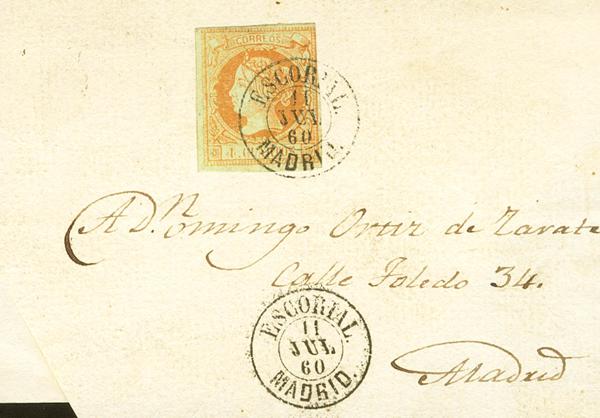 CORREOS
ESCORIAL
11
JUL
60
MADRID.
A D.n Domingo Ortiz de Zarate
Calle Toledo 34.
ESCORIAL
11
JUL
60
MADRID.
Madrid